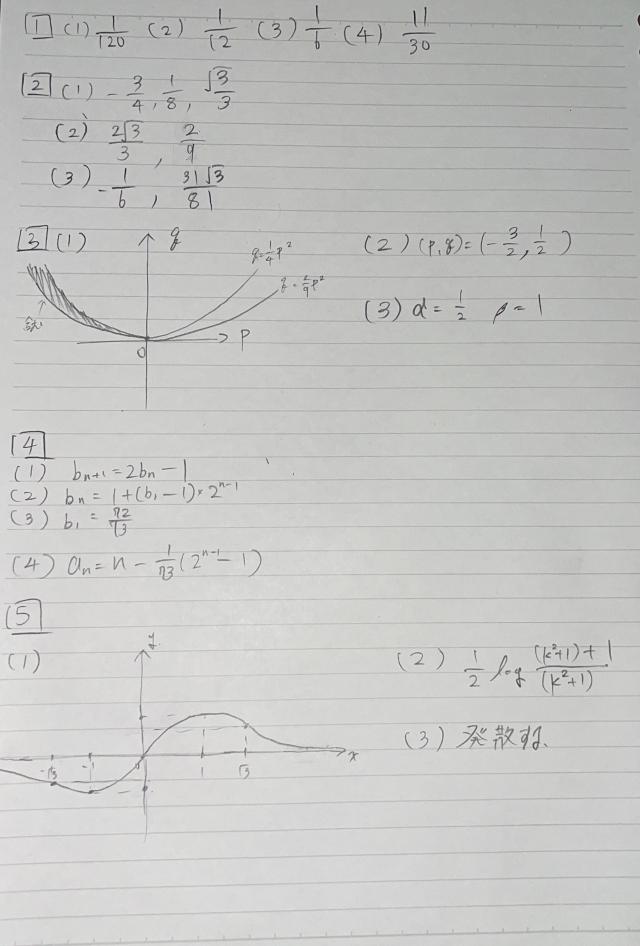 [1] (1) 1/120 (2) 1/12 (3) 1/6 (4) 11/30
[2] (1) -3/4, 1/8, √3/3
(2) 2√3/3, 2/9
(3) -1/6, 31√3/81
[3] (1) q q=1/4p² q=2/9p² p O
(2) (p,q)=(-3/2, 1/2)
(3) α=1/2 β=1
[4]
(1) bn+1=2bn-1
(2) bn=1+(b1-1)×2^(n-1)
(3) b1=72/73
(4) an=n-1/73(2^(n-1)-1)
[5]
(1) y -√3 -1 0 1 √3 x
(2) 1/2 log (k²+1)+1/(k²+1)
(3) 発散する